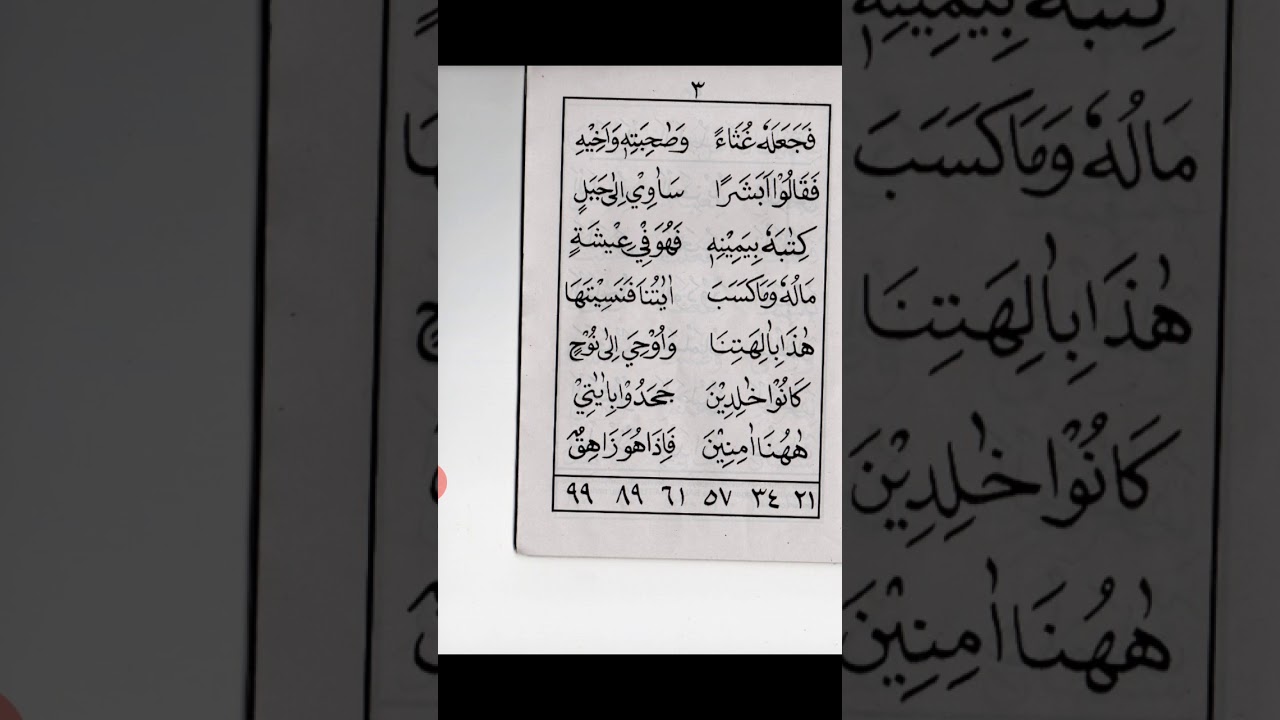 ٣
فَجَعَلَهٗ غُثَاءً وَصَاحِبَتِهٖ وَاَخِيْهِ
فَقَالُوْا اَبَشَرًا سَاٰوِيْ اِلٰى جَبَلٍ
كِتٰبَهٗ بِيَمِيْنِهٖ فَهُوَ فِيْ عِيْشَةٍ
مَالُهٗ وَمَا كَسَبَ اٰيٰتُنَا فَنَسِيْتَهَا
هٰذَا بِاٰلِهَتِنَا وَاُوْحِيَ اِلٰى نُوْحٍ
كَانُوْا خٰلِدِيْنَ جَحَدُوْا بِاٰيٰتِيْ
هٰهُنَا اٰمِنِيْنَ فَاِذَا هُوَ زَاهِقٌ
٢١ ٣٤ ٥٧ ٦١ ٨٩ ٩٩
كِتٰبَهٗ بِيَمِيْنِهٖ
مَالُهٗ وَمَا كَسَبَ
هٰذَا بِاٰلِهَتِنَا
كَانُوْا خٰلِدِيْنَ
هٰهُنَا اٰمِنِيْنَ